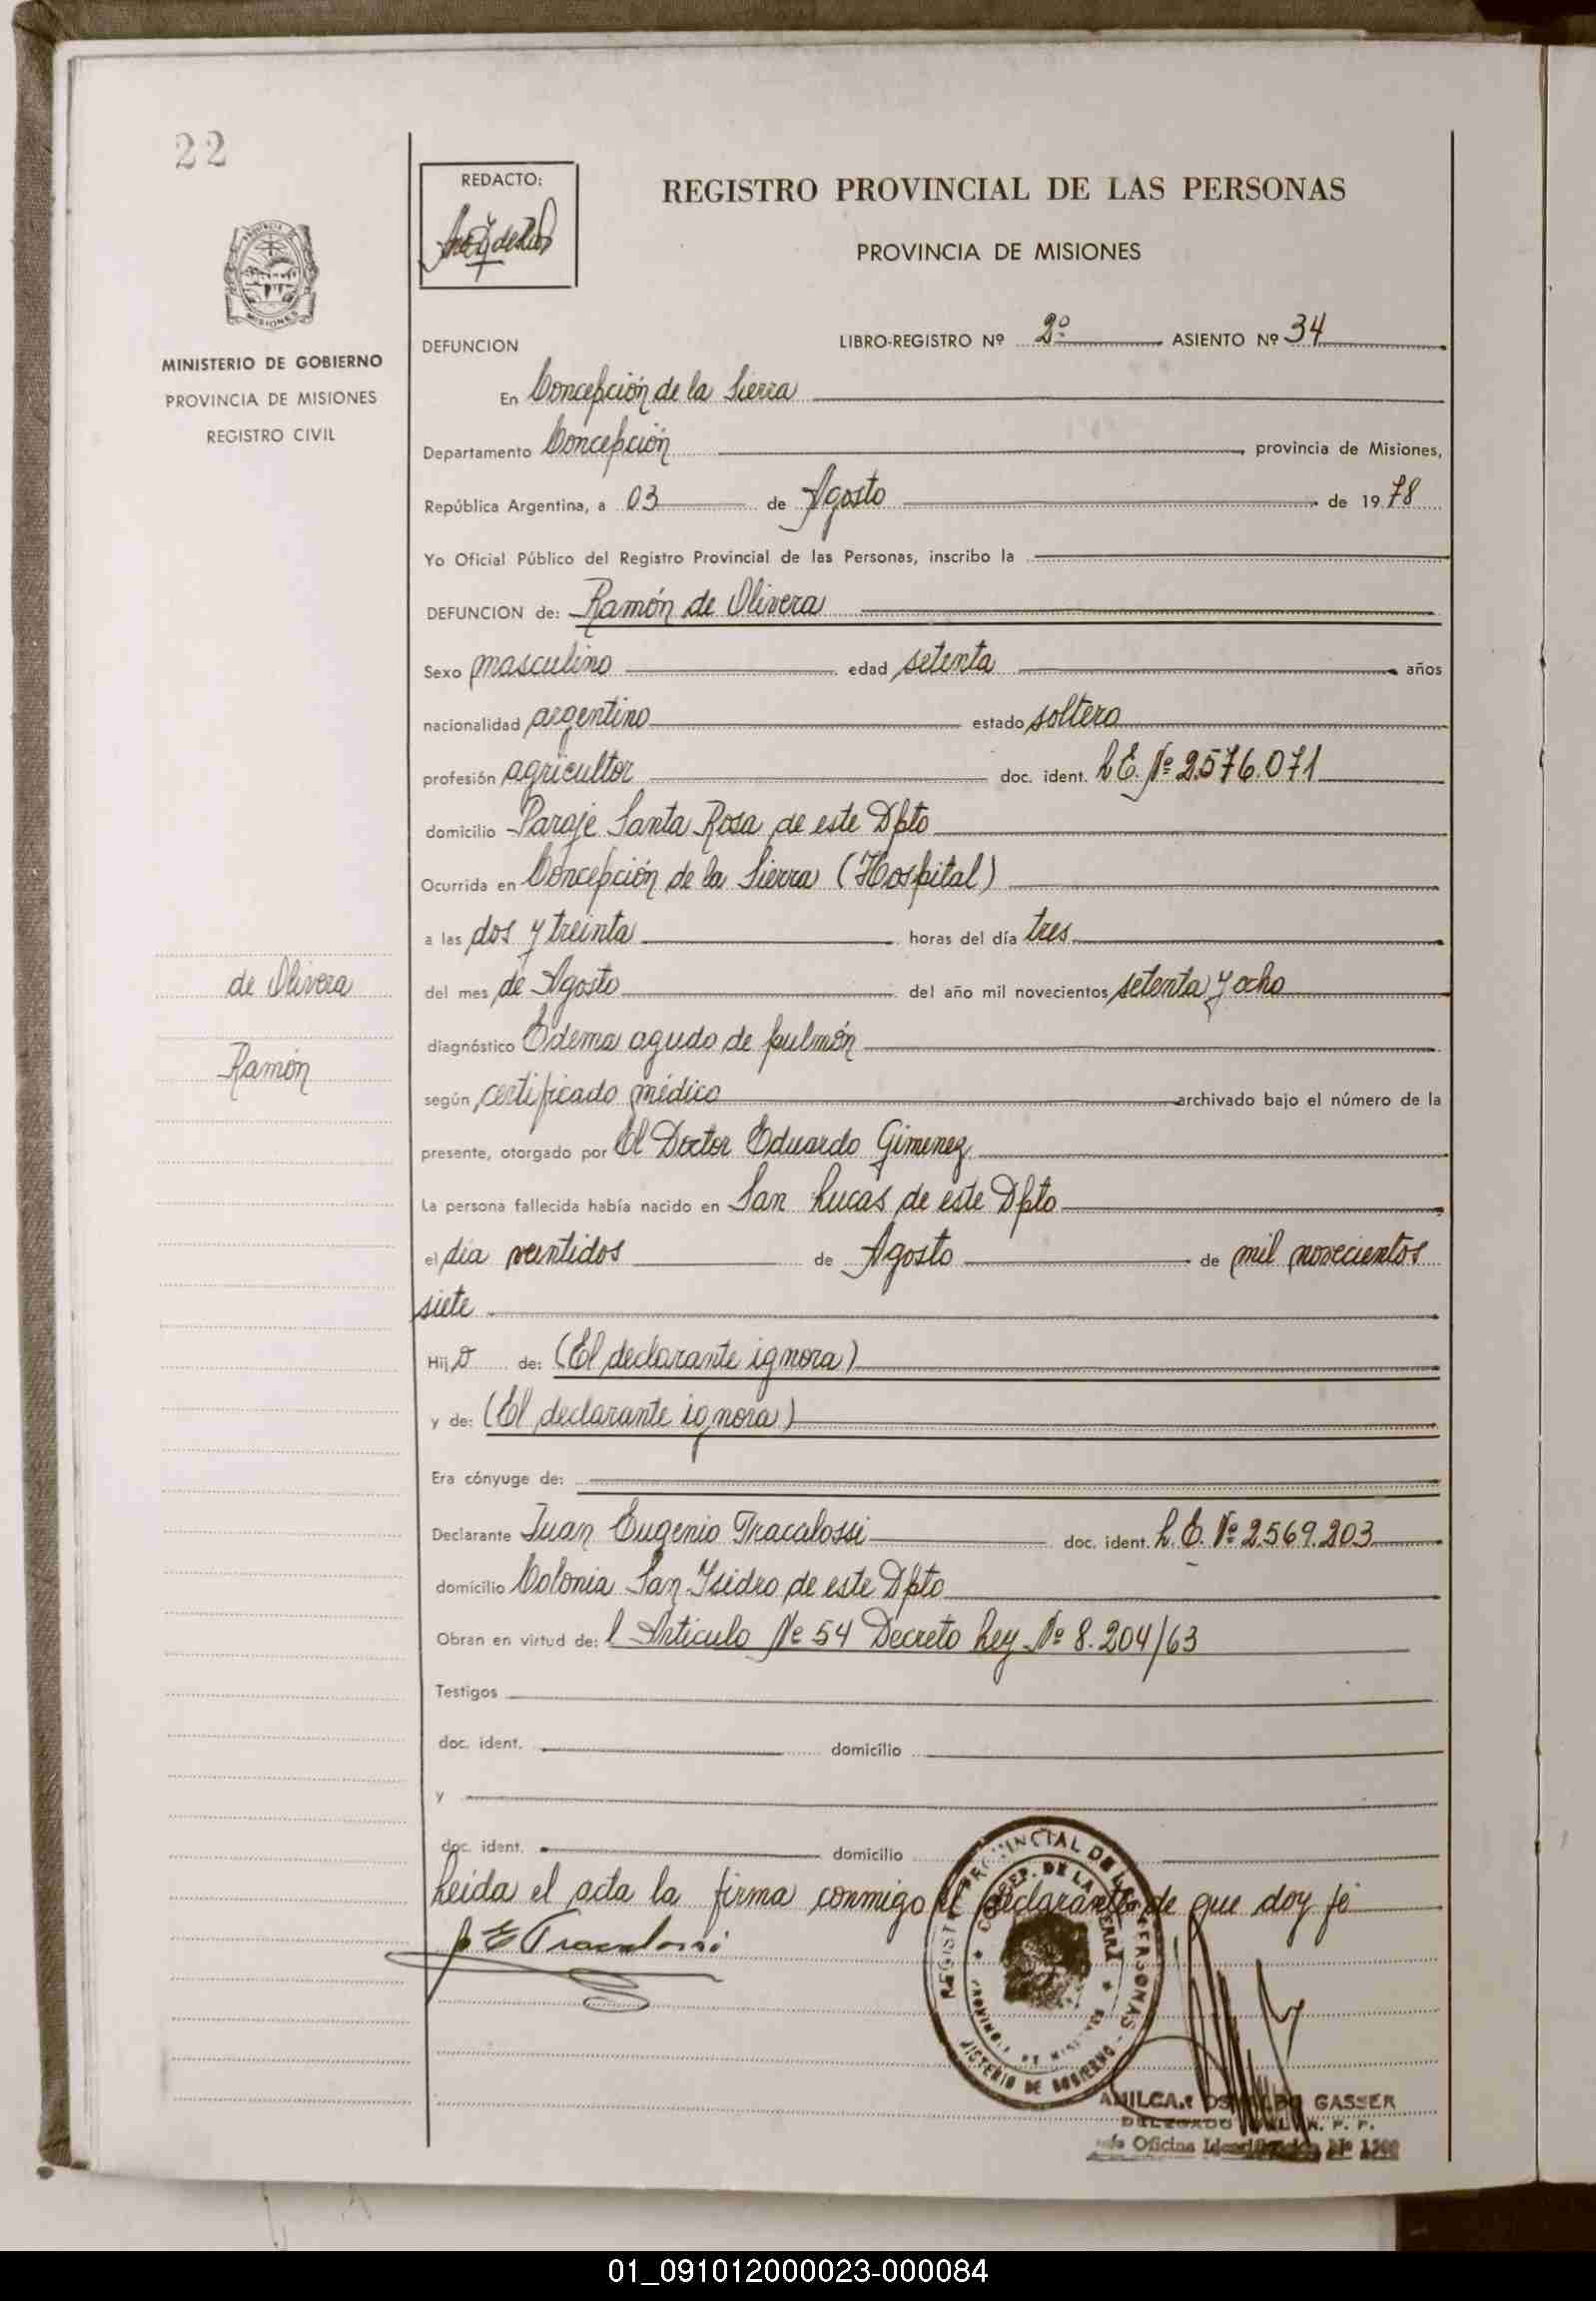 22
REDACTO:
REGISTRO PROVINCIAL DE LAS PERSONAS
PROVINCIA DE MISIONES
MISIONES
MINISTERIO DE GOBIERNO
PROVINCIA DE MISIONES
REGISTRO CIVIL
DEFUNCION
LIBRO-REGISTRO Nº 2º ASIENTO Nº 34
En Concepción de la Sierra
Departamento Concepción provincia de Misiones,
República Argentina, a 03 de Agosto de 1978
Yo Oficial Público del Registro Provincial de las Personas, inscribo la
DEFUNCION de: Ramón de Olivera
Sexo masculino edad setenta años
nacionalidad argentino estado soltero
profesión agricultor doc. ident. L.E. Nº 2.576.071
domicilio Paraje Santa Rosa de este Dpto
Ocurrida en Concepción de la Sierra (Hospital)
a las dos y treinta horas del día tres
de Olivera
del mes de Agosto del año mil novecientos setenta y ocho
diagnóstico Edema agudo de pulmón
Ramón
según certificado médico archivado bajo el número de la
presente, otorgado por El Doctor Eduardo Gimenez
La persona fallecida había nacido en San Lucas de este Dpto
el día veintidos de Agosto de mil novecientos
siete
Hijo de: (El declarante ignora)
y de: (El declarante ignora)
Era cónyuge de:
Declarante Juan Eugenio Tracalossi doc. ident. L.E. Nº 2.569.203
domicilio Colonia San Isidro de este Dpto
Obran en virtud de: l Artículo Nº 54 Decreto Ley Nº 8.204/63
Testigos
doc. ident. domicilio
y
doc. ident. domicilio
Leida el acta la firma conmigo el declarante de que doy fé
J E Tracalossi
REGISTRO PROVINCIAL DE LAS PERSONAS
CONCEP. DE LA SIERRA
PROVINCIA DE MISIONES
MINISTERIO DE GOBIERNO
AMILCAR OSVALDO GASSER
DELEGADO R. P. P.
Oficina Nº
01_091012000023-000084